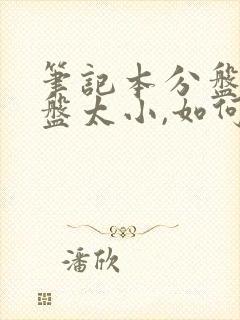 筆記本分盤
盤太小,如何
潘欣